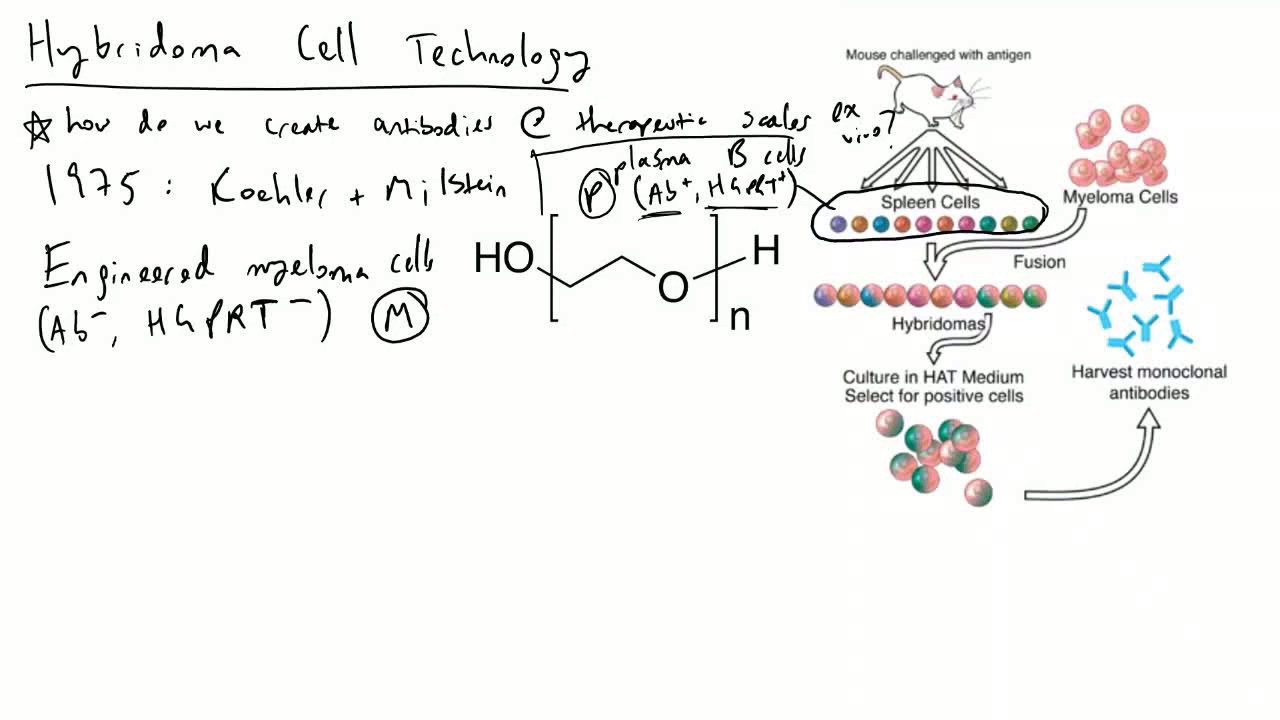 Hybridoma Cell Technology
☆ how do we create antibodies @ therapeutic scales ex vivo?
1975: Koehler + Milstein
plasma B cells
P (Ab+, HGPRT+)
Engineered myeloma cells
(Ab-, HGPRT-) M
HO
O
H
n
Mouse challenged with antigen
Spleen Cells
Myeloma Cells
Fusion
Hybridomas
Culture in HAT Medium
Select for positive cells
Harvest monoclonal
antibodies